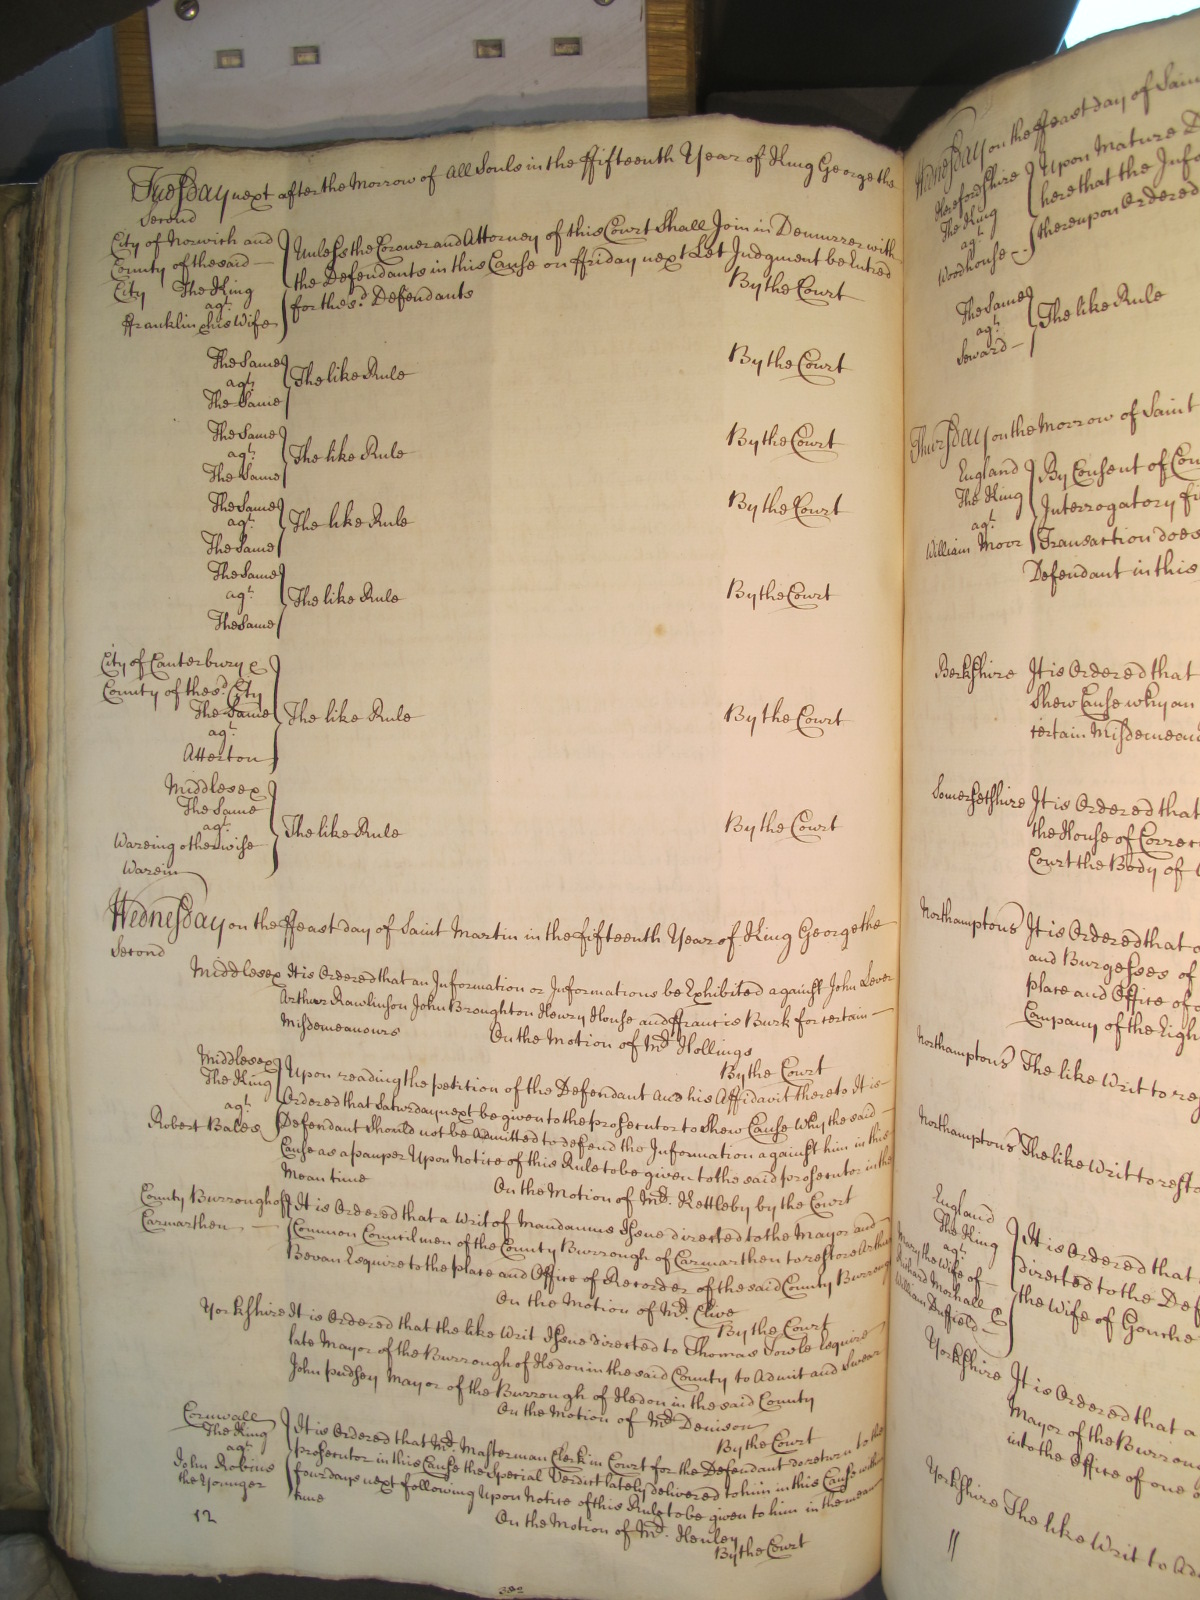 Tuesday next after the Morrow of All Souls in the ffifteenth Year of King George the
Second
City of Norwich and
County of the said —
City The King
agt.
ffranklin & his Wife
Unless the Coroner and Attorney of this Court Shall Join in Demurrer with
the Defendants in this Cause on ffriday next Let Judgment be Entred
for the sd. Defendants
By the Court
The Same
agt.
The Same
The like Rule
By the Court
The Same
agt.
The Same
The like Rule
By the Court
The Same
agt.
The Same
The like Rule
By the Court
The Same
agt.
The Same
The like Rule
By the Court
City of Canterbury &
County of the sd. City
The Same
agt.
Atterton
The like Rule
By the Court
Middlesex
The Same
agt.
Wareing otherwise
Warein
The like Rule
By the Court
Wednesday on the ffeast day of Saint Martin in the fifteenth Year of King George the
Second
Middlesex It is Ordered that an Information or Informations be Exhibited against John Lever
Arthur Rawlinson John Broughton Henry House and ffrancis Burk for certain —
Misdemeanours On the Motion of Mr. Hollings
By the Court
Middlesex
The King
agt.
Robert Bales
Upon reading the petition of the Defendant and his Affidavit thereto It is —
Ordered that Saturday next be given to the prosecutor to Shew Cause Why the said —
Defendant Should not be Admitted to defend the Information against him in this
Cause as a pauper Upon Notice of this Rule to be given to the said prosecutor in the
Mean time On the Motion of Mr. Kettleby by the Court
County Burrough of
Carmarthen —
It is Ordered that a Writ of Mandamus Issue directed to the Mayor and
Common Councilmen of the County Burrough of Carmarthen to restore Arthur
Bevan Esquire to the place and Office of Recorder of the said County Burrough
On the Motion of Mr. Clive
By the Court
Yorkshire It is Ordered that the like Writ Issue directed to Thomas Esquire
late Mayor of the Burrough of Hedon in the said County to Admit and Swear
John pudsey Mayor of the Burrough of Hedon in the said County
On the Motion of Mr. Denison
By the Court
Cornwall
The King
agt.
John Robins
the Younger
It is Ordered that Mr. Masterman Clerk in Court for the Defendant do return to the
prosecutor in this Cause the Special Verdict lately delivered to him in this Cause within
four days next following Upon Notice of this Rule to be given to him in the mean
time
On the Motion of Mr. Henley
By the Court
12
382
Wednesday on the ffeast day of Sain
Herefordshire
The King
agt.
Woodhouse —
Upon Mature D
here that the Info
thereupon Ordered
The Same
agt.
Seward —
The like Rule
Thursday on the Morrow of Saint
England
The King
agt.
William Moor
By Consent of Cou
Interrogatory
Transaction does
Defendant in this
Berkshire It is Ordered that
Shew Cause why an
certain Misdemean
Somersetshire It is Ordered that
the House of Correc
Court the Body of
Northamptons It is Ordered that a
and Burgesses of
place and Office of
Company of the Eigh
Northamptons The like Writ to res
Northamptons The like Writ to resto
England
The King
agt.
Mary the Wife of —
Richard Morhall &
William Duffield —
It is Ordered that
directed to the Def
the Wife of Gouche
Yorkshire It is Ordered that a
Mayor of the Burrou
into the Office of one
Yorkshire The like Writ to Ad
//